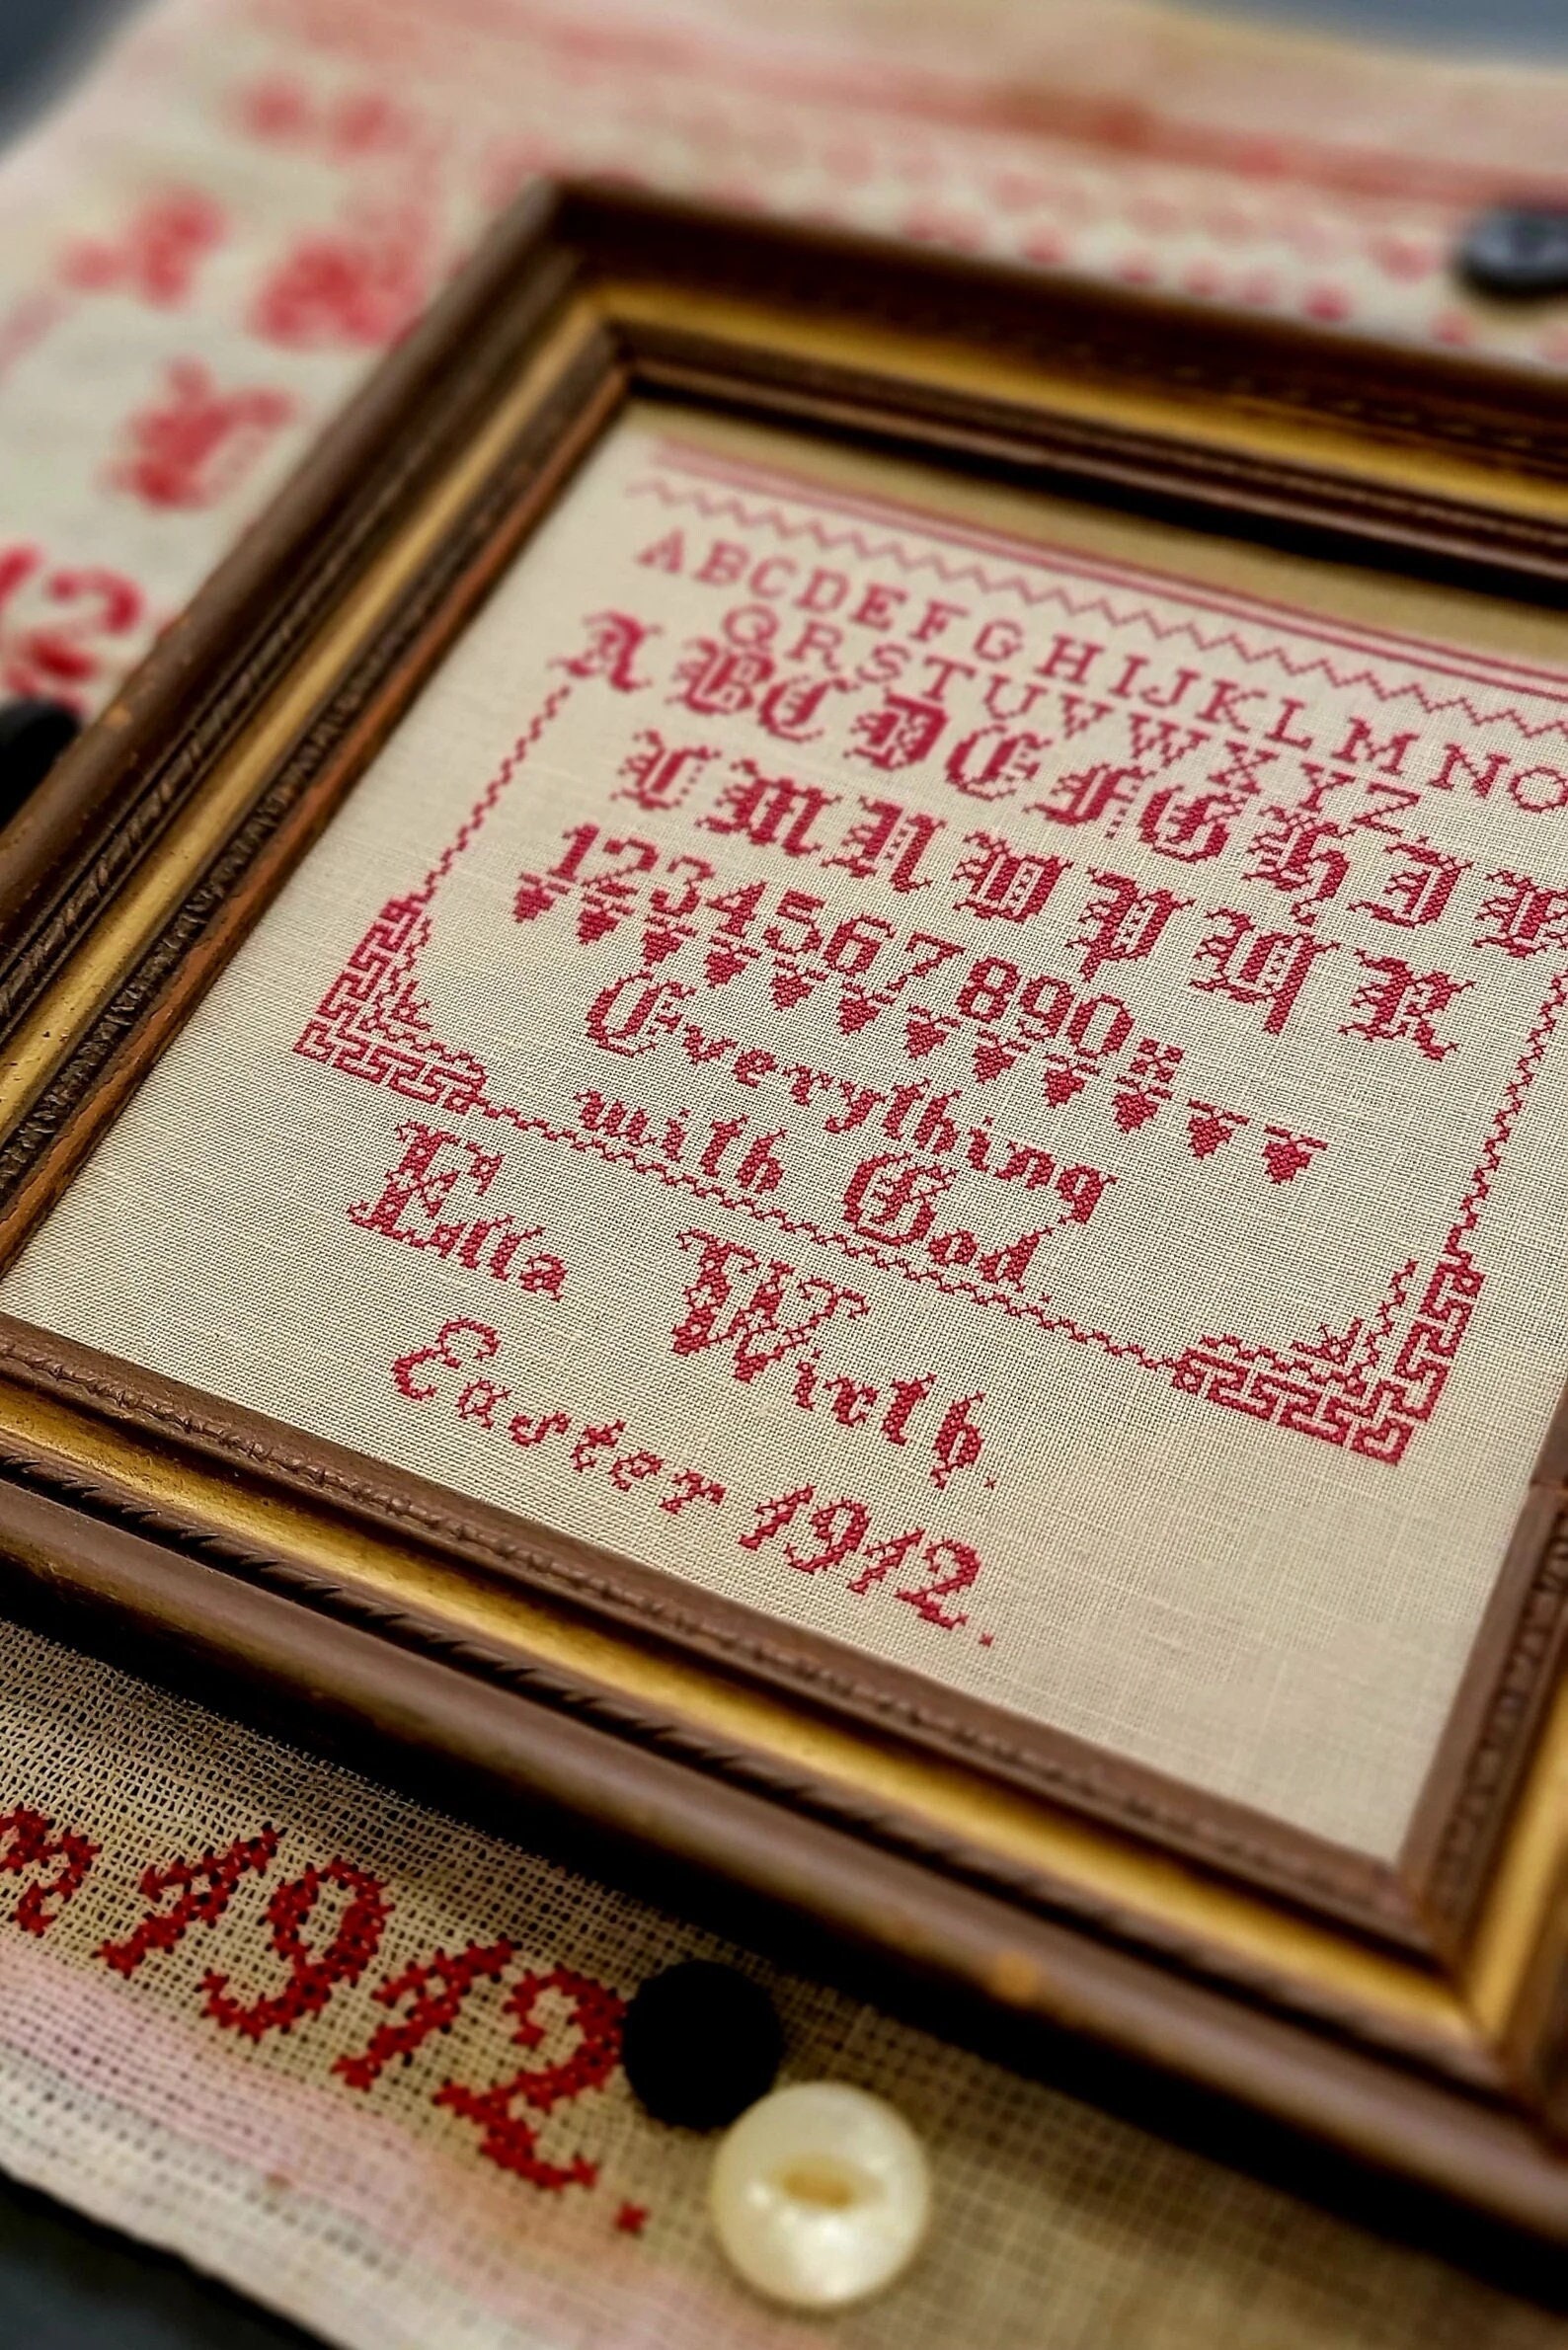 ABCDEFGHIJKLMNO
QRSTUVWXYZ.
ABCDEFGHI
LMNOPQR
1234567890
Everything
with God.
Ella Wirth.
Easter 1912.
1912.